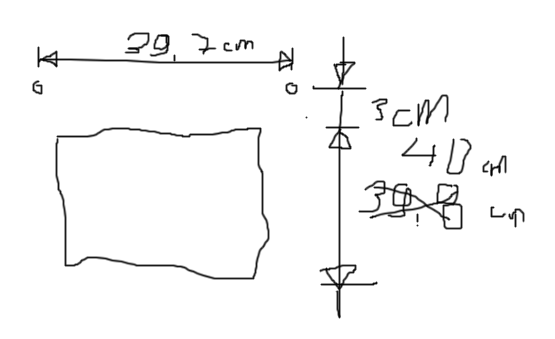 39,7 cm
G
O
3 cm
40 cm
cm